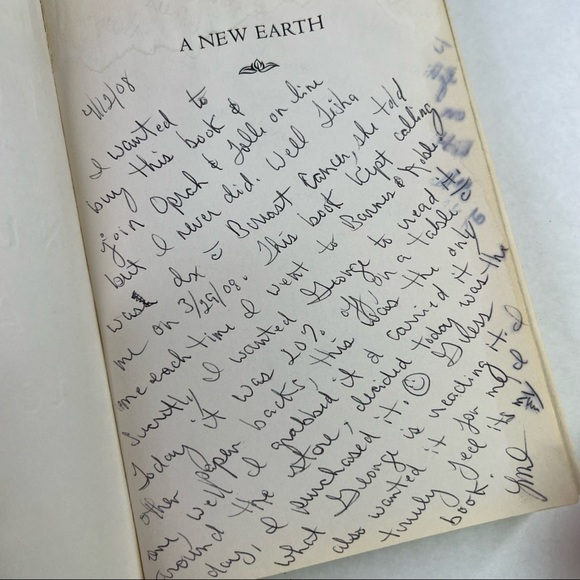 A NEW EARTH
4/12/08
I wanted to
buy this book &
join Oprah & Tolle on line
but I never did. Well Trisha
was dx c̄ Breast Cancer, she told
me on 3/29/08. This book kept calling
me each time I went to Barnes & Noble
I wanted George to read it.
Today it was 20% off on a table c̄
other paper backs, this was the only
one, well I grabbed it & carried it
around the store, decided today was the
day, I purchased it. ☺ Guess
what George is reading it. I
also wanted it for me & I
truly feel it is my
book.